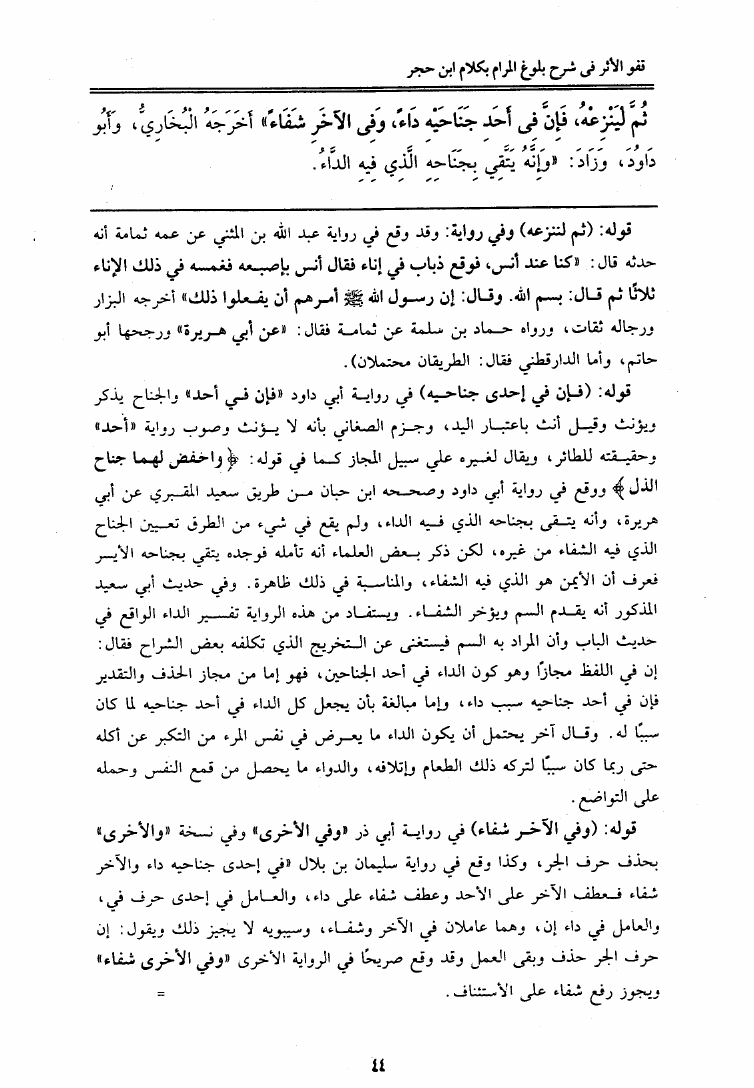 قفو الأثر فى شرح بلوغ المرام بكلام ابن حجر
ثُمَّ لْيَنْزِعْهُ، فَإِنَّ فِي أَحَدِ جَنَاحَيْهِ دَاءً، وَفِي الآخَرِ شَفَاءً» أَخرَجَهُ الْبُخَارِيُّ، وَأَبُو
دَاوُدَ، وَزَادَ: «وَإِنَّهُ يَتَّقِي بِجَنَاحِهِ الَّذِي فِيهِ الدَّاءُ.
قوله: (ثم لننزعه) وفي رواية: وقد وقع في رواية عبد الله بن المثني عن عمه ثمامة أنه
حدثه قال: «كنا عند أنس، فوقع ذباب في إناء فقال أنس بإصبعه فغمسه في ذلك الإناء
ثلاثًا ثم قال: بسم الله. وقال: إن رسول الله ﷺ أمرهم أن يفعلوا ذلك» أخرجه البزار
ورجاله ثقات، ورواه حماد بن سلمة عن ثمامة فقال: «عن أبي هريرة» ورجحها أبو
حاتم، وأما الدارقطني فقال: الطريقان محتملان).
قوله: (فإن في إحدى جناحيه) في رواية أبي داود «فإن في أحد» والجناح يذكر
ويؤنث وقيل أنث باعتبار اليد، وجزم الصغاني بأنه لا يؤنث وصوب رواية «أحد»
وحقيقته للطائر، ويقال لغيره علي سبيل المجاز كما في قوله: ﴿واخفض لهما جناح
الذل﴾ ووقع في رواية أبي داود وصححه ابن حبان من طريق سعيد المقبري عن أبي
هريرة، وأنه يتقى بجناحه الذي فيه الداء، ولم يقع في شيء من الطرق تعيين الجناح
الذي فيه الشفاء من غيره، لكن ذكر بعض العلماء أنه تأمله فوجده يتقي بجناحه الأيسر
فعرف أن الأيمن هو الذي فيه الشفاء، والمناسبة في ذلك ظاهرة. وفي حديث أبي سعيد
المذكور أنه يقدم السم ويؤخر الشفاء. ويستفاد من هذه الرواية تفسير الداء الواقع في
حديث الباب وأن المراد به السم فيستغنى عن التخريج الذي تكلفه بعض الشراح فقال:
إن في اللفظ مجازًا وهو كون الداء في أحد الجناحين، فهو إما من مجاز الحذف والتقدير
فإن في أحد جناحيه سبب داء، وإما مبالغة بأن يجعل كل الداء في أحد جناحيه لما كان
سببًا له. وقال آخر يحتمل أن يكون الداء ما يعرض في نفس المرء من التكبر عن أكله
حتى ربما كان سببًا لتركه ذلك الطعام وإتلافه، والدواء ما يحصل من قمع النفس وحمله
على التواضع.
قوله: (وفي الآخر شفاء) في رواية أبي ذر «وفي الأخرى» وفي نسخة «والأخرى»
بحذف حرف الجر، وكذا وقع في رواية سليمان بن بلال «في إحدى جناحيه داء والآخر
شفاء فعطف الآخر على الأحد وعطف شفاء على داء، والعامل في إحدى حرف في،
والعامل في داء إن، وهما عاملان في الآخر وشفاء، وسيبويه لا يجيز ذلك ويقول: إن
حرف الجر حذف وبقى العمل وقد وقع صريحًا في الرواية الأخرى «وفي الأخرى شفاء»
ويجوز رفع شفاء على الأستئناف. =
٤٤